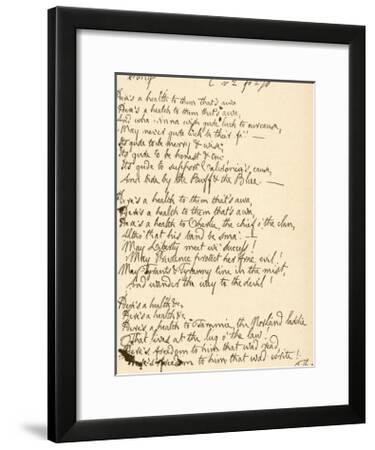 Song
Here's a health to them that's awa
Here's a health to them that's awa,
And wha winna wish gude luck to our cause,
May never gude luck be their fa' —
It's gude to be merry & wise;
Its gude to be honest & true
Its gude to support Caledonia's cause,
And bide by the Buff & the Blue —
Here's a health to them that's awa,
Here's a health to them that's awa,
Here's a health to Charlie, the chief o' the clan,
Altho' that his band be sma' —
May Liberty meet wi' success!
May Prudence protect her frae evil!
May Tyrants & Tyranny tine in the mist,
And wander the way to the devil!
Here's a health &c
Here's a health &c
Here's a health to Tammie, the Norland laddie
That lives at the lug o' the law
Here's freedom to him that wad read,
Here's freedom to him that wad write!